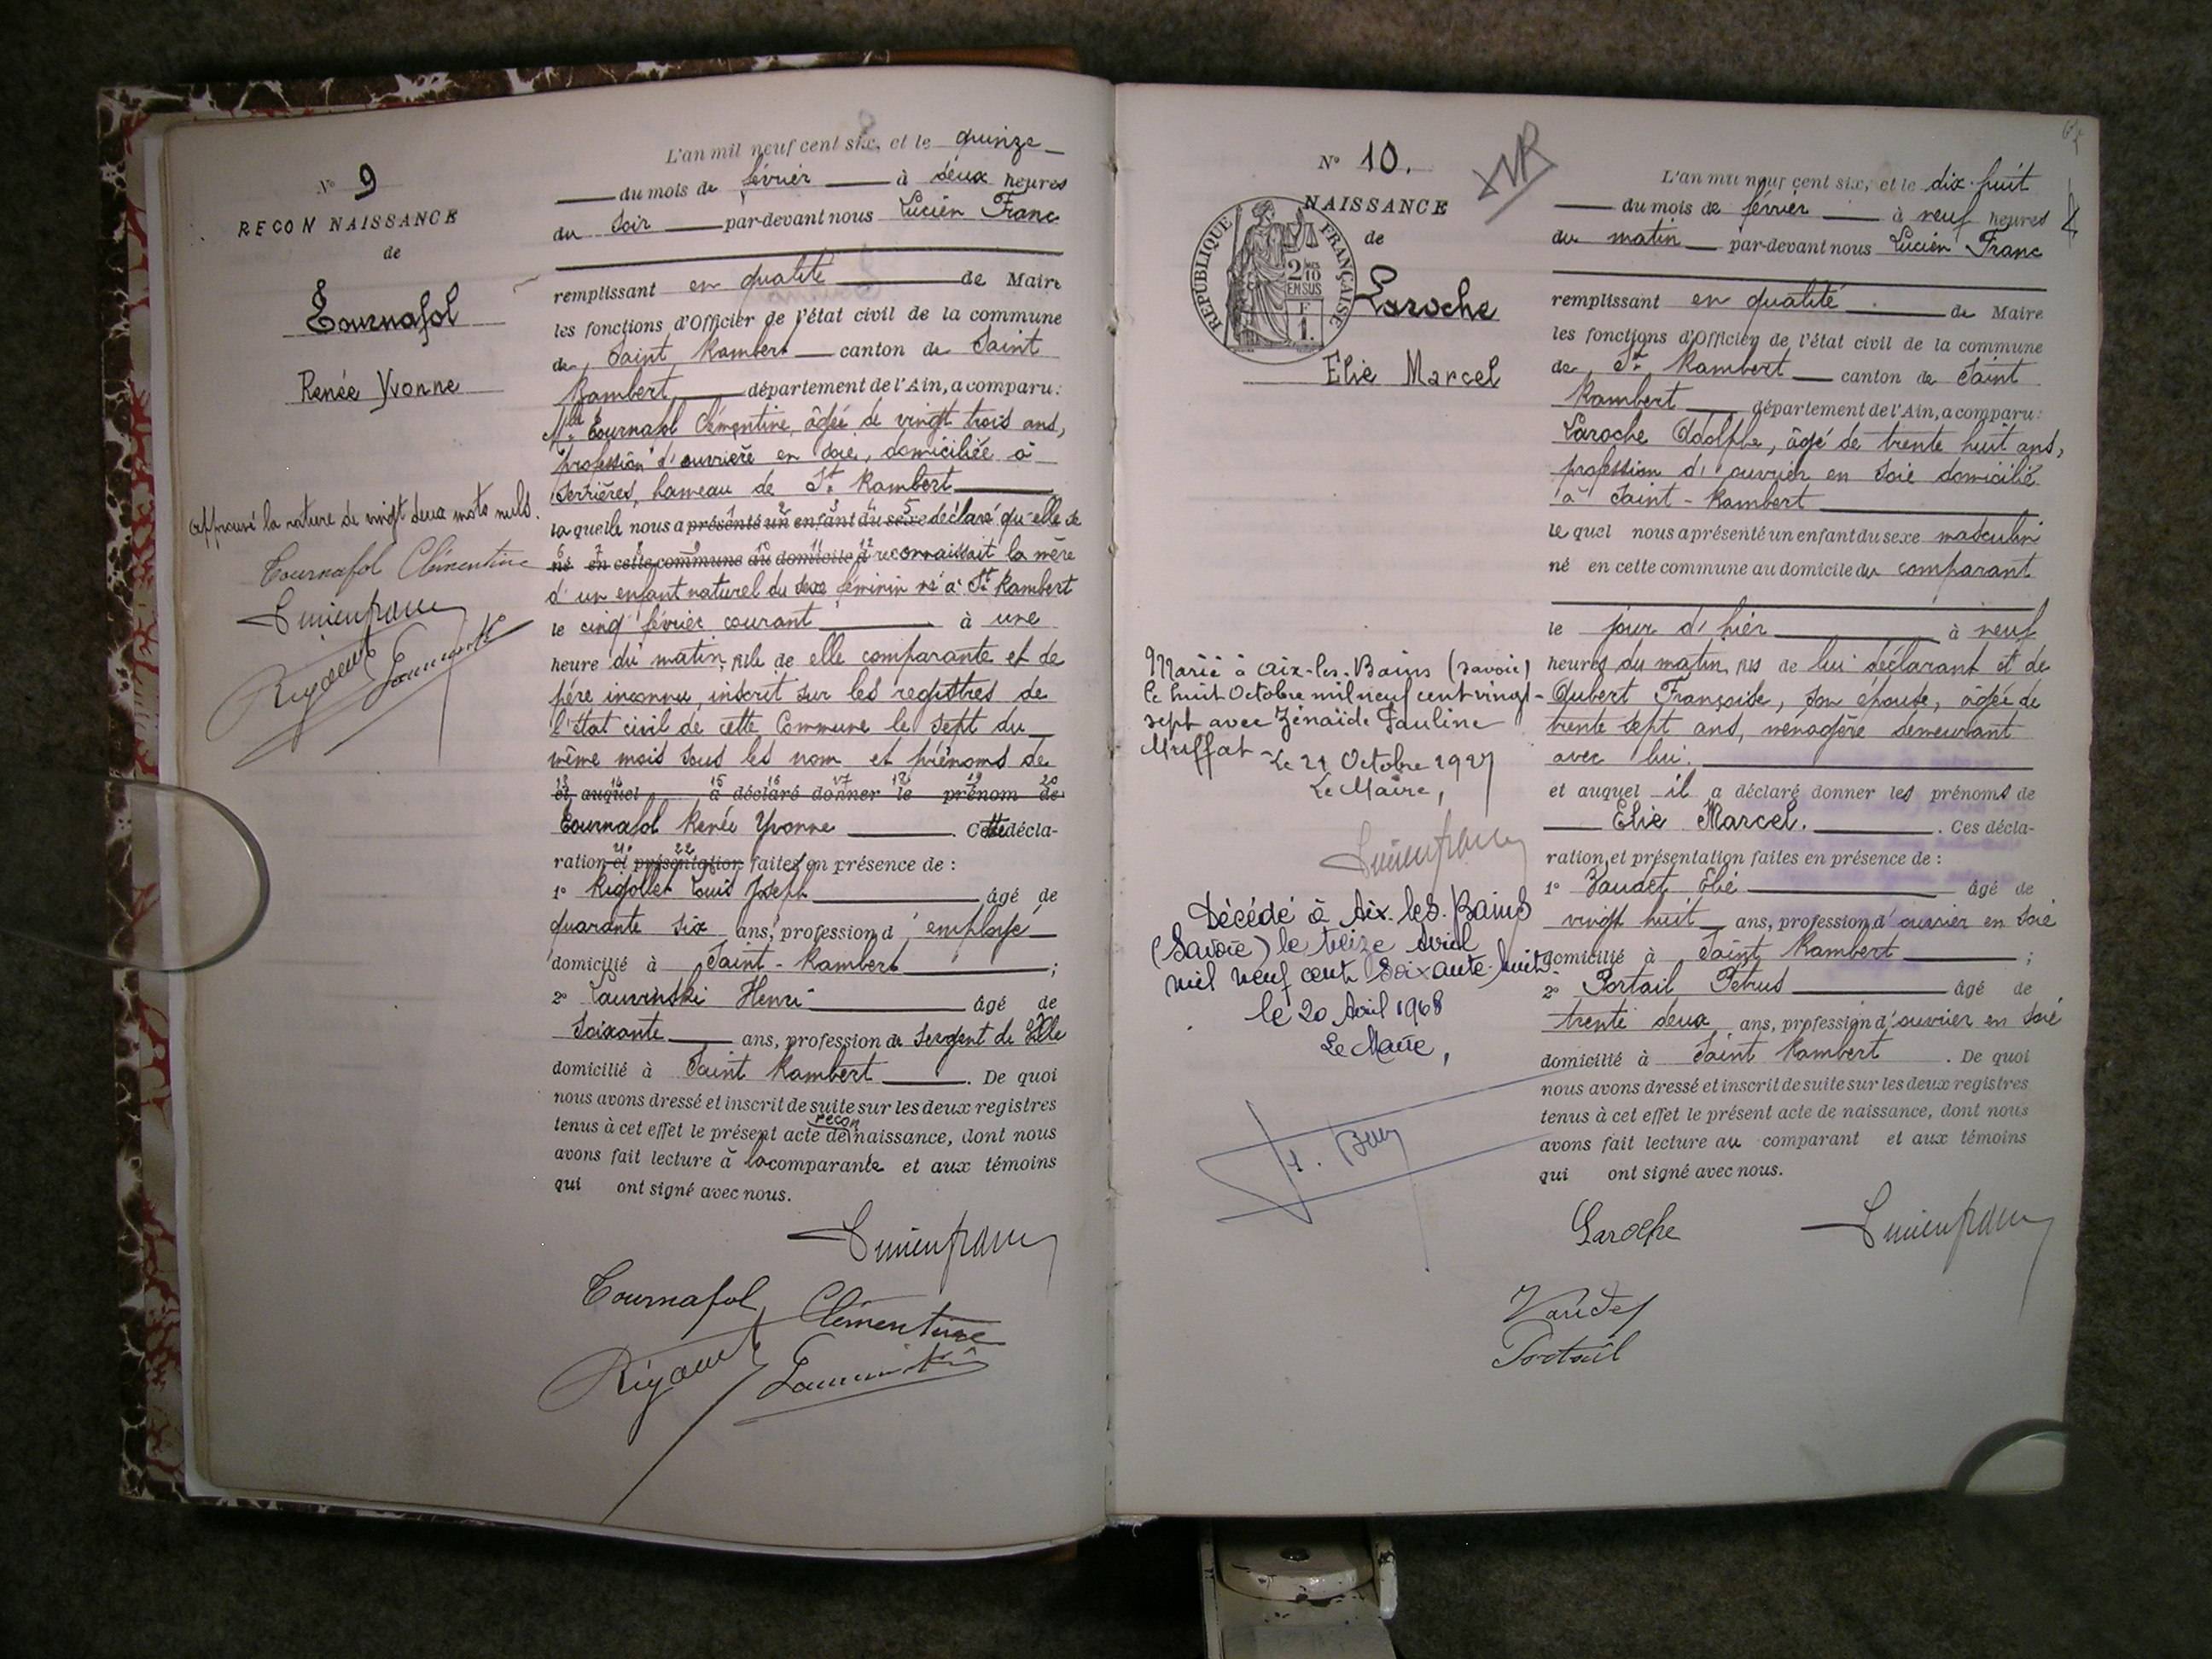 N° 9
RECONNAISSANCE
de
Tournafol
Renée Yvonne
Approuvé la rature de vingt deux mots nuls.
Tournafol Clémentine
L'an mil neuf cent six, et le quinze
du mois de février à deux heures
du soir par-devant nous Lucien Franc
remplissant en qualité de Maire
les fonctions d'Officier de l'état civil de la commune
de Saint Rambert canton de Saint
Rambert département de l'Ain, a comparu:
Mlle Tournafol Clémentine, âgée de vingt trois ans,
profession d'ouvrière en soie, domiciliée à
Serrières, hameau de St. Rambert
laquelle nous a présenté un enfant du sexe déclaré qu'elle se
né en cette commune au domicile d reconnaissait la mère
d'un enfant naturel du sexe féminin né à St Rambert
le cinq février courant à une
heure du matin, fille de elle comparante et de
père inconnu, inscrit sur les registres de
l'état civil de cette Commune le sept du
même mois sous les nom et prénoms de
et auquel a déclaré donner le prénom de
Tournafol Renée Yvonne. Cette décla-
ration et présentation faites en présence de :
1° Rigollet Louis Joseph âgé de
quarante six ans, profession d'employé
domicilié à Saint-Rambert ;
2° Henri âgé de
soixante ans, profession de Sergent de Ville
domicilié à Saint Rambert. De quoi
nous avons dressé et inscrit de suite sur les deux registres
tenus à cet effet le présent acte de reconnaissance, dont nous
avons fait lecture à la comparante et aux témoins
qui ont signé avec nous.
Tournafol Clémentine
N° 10.
NAISSANCE
de
Laroche
Elie Marcel
RÉPUBLIQUE FRANÇAISE
2/10 EN SUS
F 1.
Marié à Aix-les-Bains (Savoie)
le huit Octobre mil neuf cent vingt-
sept avec Zénaïde Pauline
Muffat - Le 21 Octobre 1927
Le Maire,
Décédé à Aix-les-Bains
(Savoie) le treize Avril
mil neuf cent soixante-huit
le 20 Avril 1968
Le Maire,
L'an mil neuf cent six, et le dix-huit
du mois de février à neuf heures
du matin par-devant nous Lucien Franc
remplissant en qualité de Maire
les fonctions d'Officier de l'état civil de la commune
de St. Rambert canton de Saint
Rambert département de l'Ain, a comparu:
Laroche Adolphe, âgé de trente huit ans,
profession d'ouvrier en soie domicilié
à Saint-Rambert
lequel nous a présenté un enfant du sexe masculin
né en cette commune au domicile du comparant
le jour d'hier à neuf
heures du matin, fils de lui déclarant et de
Aubert Françoise, son épouse, âgée de
trente sept ans, ménagère demeurant
avec lui.
et auquel il a déclaré donner les prénoms de
Elie Marcel. Ces décla-
ration et présentation faites en présence de :
1° Vaudet Elie âgé de
vingt huit ans, profession d'ouvrier en soie
domicilié à Saint Rambert ;
2° Portail Petrus âgé de
trente deux ans, profession d'ouvrier en soie
domicilié à Saint Rambert. De quoi
nous avons dressé et inscrit de suite sur les deux registres
tenus à cet effet le présent acte de naissance, dont nous
avons fait lecture au comparant et aux témoins
qui ont signé avec nous.
Laroche
Vaudet
Portail